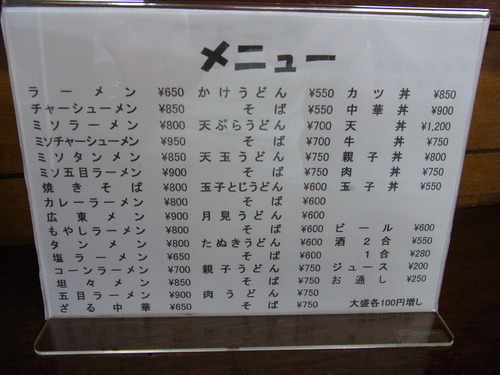 メニュー
ラーメン ¥650
チャーシューメン ¥850
ミソラーメン ¥800
ミソチャーシューメン ¥950
ミソタンメン ¥850
ミソ五目ラーメン ¥900
焼きそば ¥800
カレーラーメン ¥800
広東メン ¥900
もやしラーメン ¥800
タンメン ¥800
塩ラーメン ¥650
コーンラーメン ¥700
坦々メン ¥850
五目ラーメン ¥900
ざる中華 ¥650
かけうどん ¥550
そば ¥550
天ぷらうどん ¥700
そば ¥700
天玉うどん ¥750
そば ¥750
玉子とじうどん ¥600
そば ¥600
月見うどん ¥600
そば ¥600
たぬきうどん ¥600
そば ¥600
親子うどん ¥750
そば ¥750
肉うどん ¥750
そば ¥750
カツ丼 ¥850
中華丼 ¥900
天丼 ¥1,200
牛丼 ¥750
親子丼 ¥800
肉丼 ¥750
玉子丼 ¥550
ビール ¥600
酒2合 ¥550
1合 ¥280
ジュース ¥200
お通し ¥250
大盛各100円増し